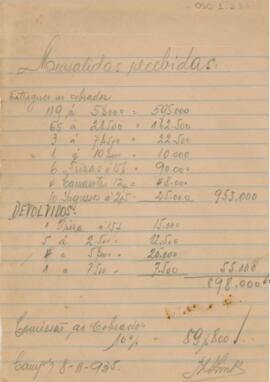 Mensalidas recebidas.
Entregues ao cobrador
119 á 5$000 = 595.000
65 á 2$500 = 162.500
3 á 7$500 = 22.500
1 á 10$000 = 10.000
6 á 15$ = 90.000
4 12$ = 48.000
10 Ingressos á 2,5 = 25.000 953.000
DEVOLVIDOS:
1 á 15$ 15.000
5 á 2.500 = 12.500
5$000 = 20.000
1 á 7$500 = 7.500 55.000
898.000
Comissão ao Cobrador
10% 89$800
8-11-935.